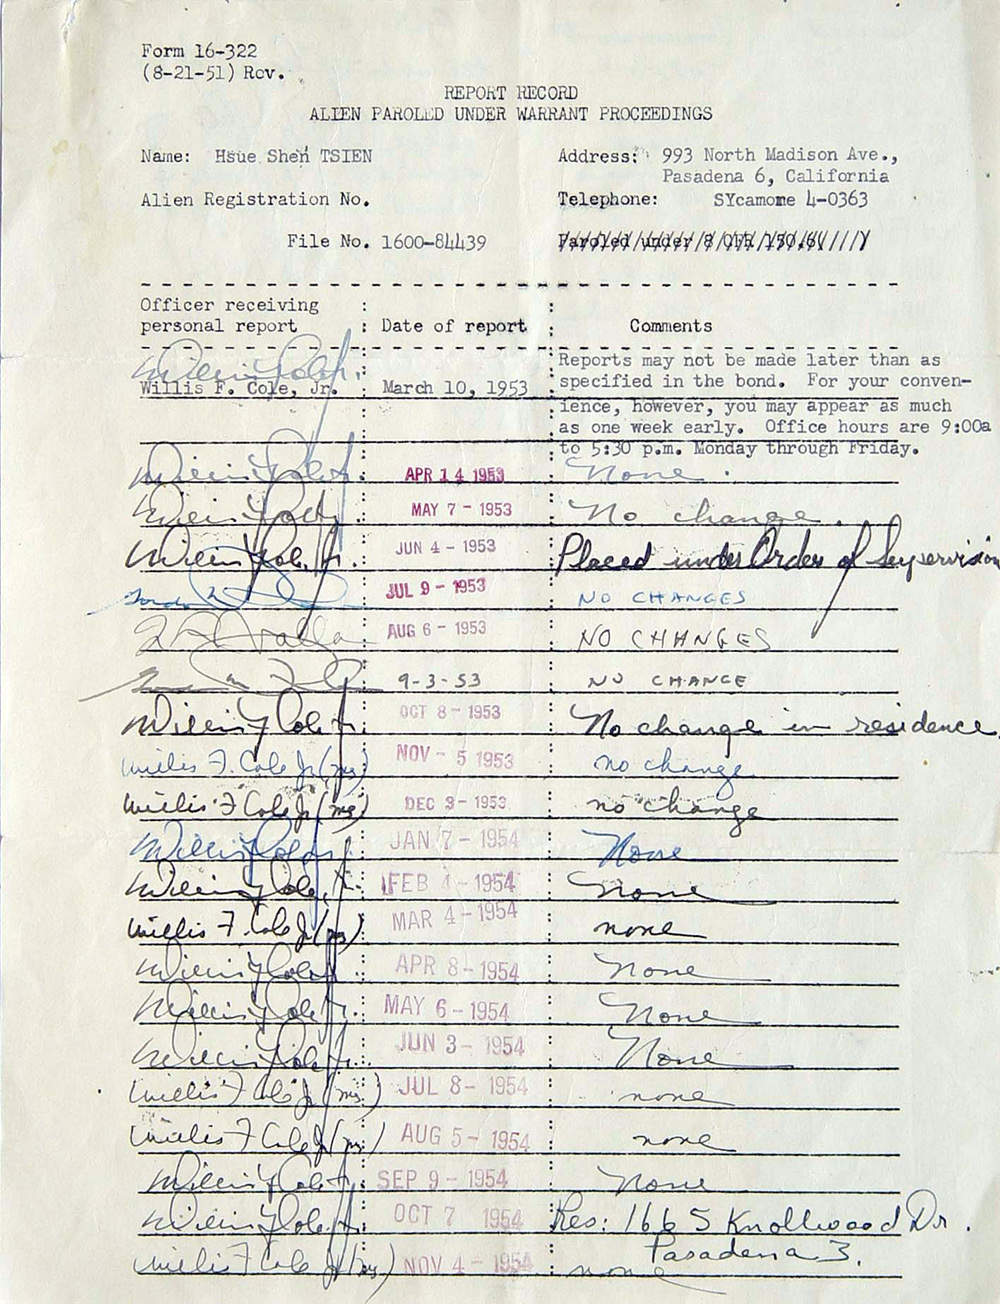 Form 16-322
(8-21-51) Rev.
REPORT RECORD
ALIEN PAROLED UNDER WARRANT PROCEEDINGS
Name: Hsue Shen TSIEN
Address: 993 North Madison Ave.,
Pasadena 6, California
Alien Registration No.
Telephone: SYcamome 4-0363
File No. 1600-84439
Officer receiving
personal report : Date of report : Comments
Willis F. Cole, Jr. March 10, 1953
Reports may not be made later than as
specified in the bond. For your conven-
ience, however, you may appear as much
as one week early. Office hours are 9:00a
to 5:30 p.m. Monday through Friday.
Willis F Cole Jr. APR 14 1953 None.
Willis F Cole Jr. MAY 7 - 1953 No change.
Willis F Cole Jr. JUN 4 - 1953 Placed under Order of Supervision
JUL 9 - 1953 NO CHANGES
AUG 6 - 1953 NO CHANGES
9-3-53 NO CHANGE
Willis F Cole Jr. OCT 8 - 1953 No change in residence.
Willis F. Cole Jr (mg) NOV - 5 1953 no change
Willis F Cole Jr (mg) DEC 3 - 1953 no change
Willis F Cole Jr. JAN 7 - 1954 None
Willis F Cole Jr. FEB 4 - 1954 None
Willis F. Cole Jr (mg) MAR 4 - 1954 none
Willis F Cole Jr. APR 8 - 1954 None
Willis F Cole Jr. MAY 6 - 1954 None
Willis F Cole Jr. JUN 3 - 1954 None
Willis F Cole Jr (mg) JUL 8 - 1954 none
Willis F Cole Jr (mg) AUG 5 - 1954 none
Willis F Cole Jr. SEP 9 - 1954 None
Willis F Cole Jr. OCT 7 1954 Res: 1665 Knollwood Dr.
Pasadena 3.
Willis F Cole Jr (mg) NOV 4 - 1954 none